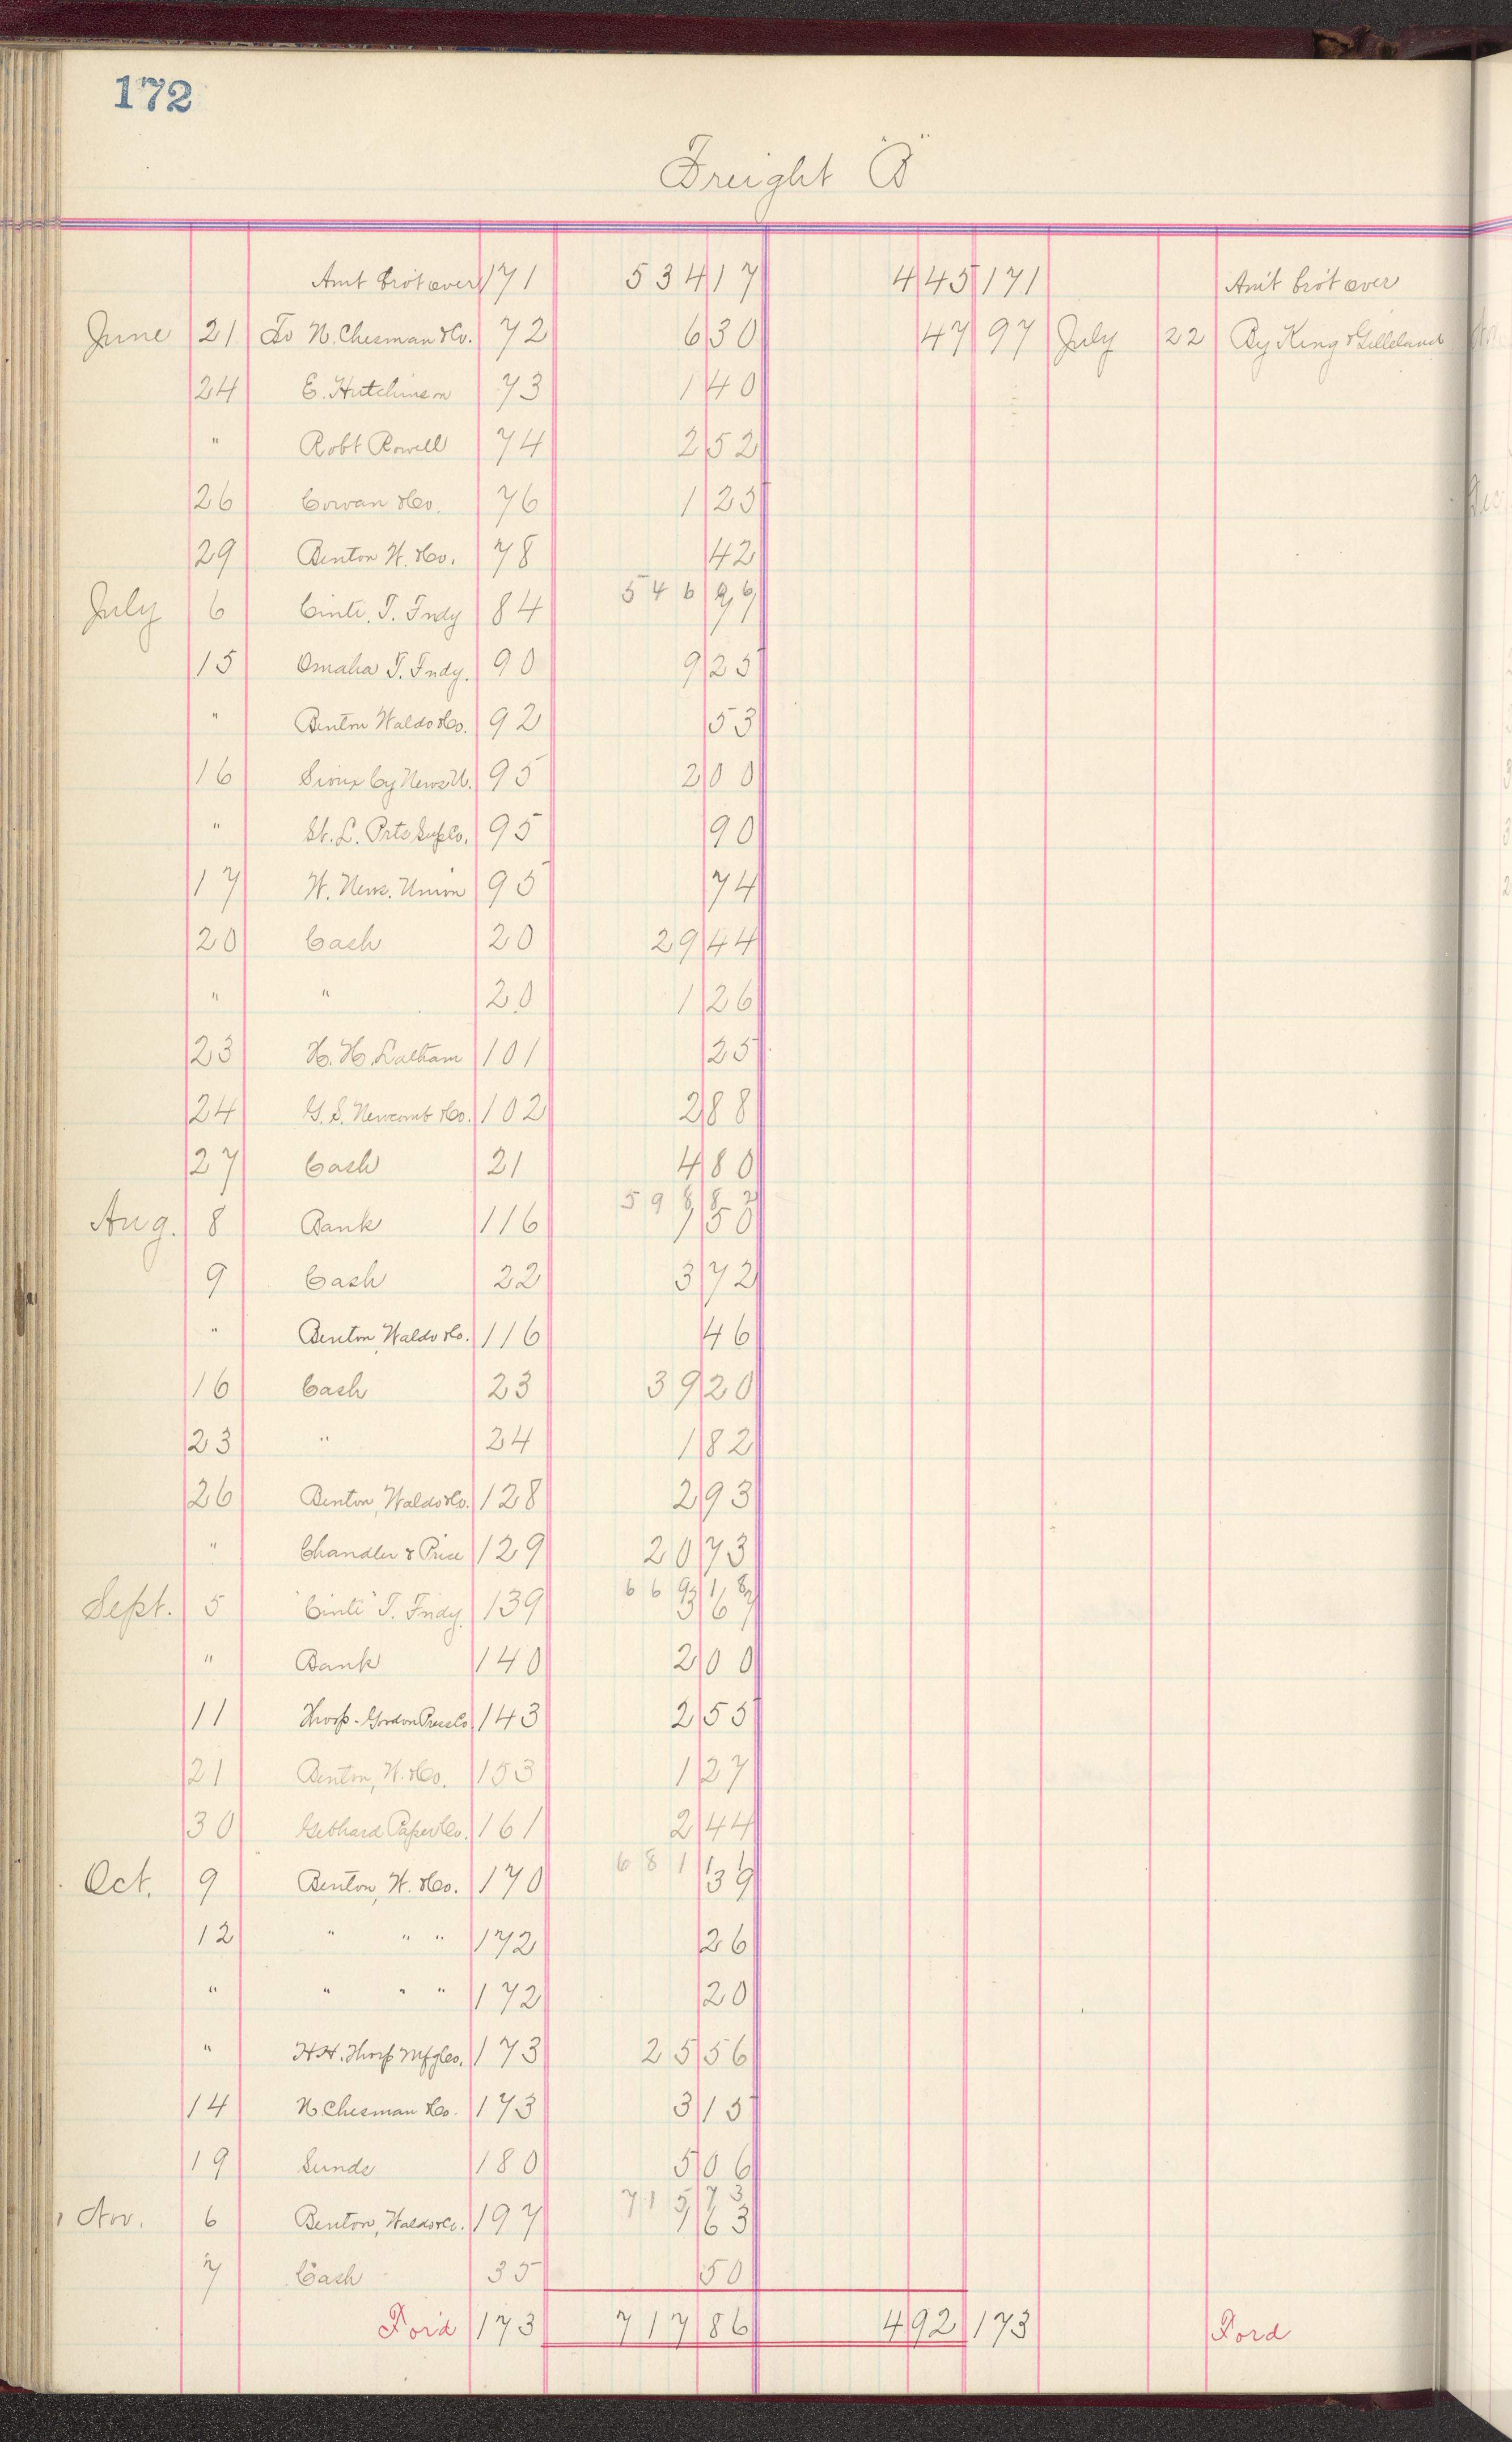 172
Freight "B"
Amt brot over 171 534 17 4 45 171 Amt brot over
June 21 To N. Chesman & Co. 72 6 30 47 97 July 22 By King & Gilleland
24 E. Hutchinson 73 1 40
" Robt Rowell 74 2 52
26 Cowan & Co. 76 1 25
29 Benton W. & Co. 78 42
546 96
July 6 Cinti. T. Fndy 84 97
15 Omaha T. Fndy. 90 9 25
" Benton Waldo & Co. 92 53
16 Sioux Cy News U. 95 2 00
" St. L. Prts Sup Co. 95 90
17 W. News. Union 95 74
20 Cash 20 29 44
" " 20 1 26
23 H. H. Latham 101 25
24 G. S. Newcomb & Co. 102 2 88
27 Cash 21 4 80
598 82
Aug. 8 Bank 116 1 50
9 Cash 22 3 72
" Benton, Waldo & Co. 116 46
16 Cash 23 39 20
23 " 24 1 82
26 Benton, Waldo & Co. 128 2 93
" Chandler & Price 129 20 73
669 18
Sept. 5 "Cinti" T. Fndy. 139 3 67
" Bank 140 2 00
11 Thorp-Gordon Press Co 143 2 55
21 Benton, W. & Co. 153 1 27
30 Gebhard Paper Co. 161 2 44
681 11
Oct. 9 Benton, W. & Co. 170 39
12 " " " 172 26
" " " " 172 20
" H.H. Thorp Mfg Co. 173 25 56
14 N Chesman & Co. 173 3 15
19 Sunds 180 5 06
715 73
Nov. 6 Benton, Waldo & Co. 197 1 63
7 Cash 35 50
For'd 173 717 86 4 92 173 Ford